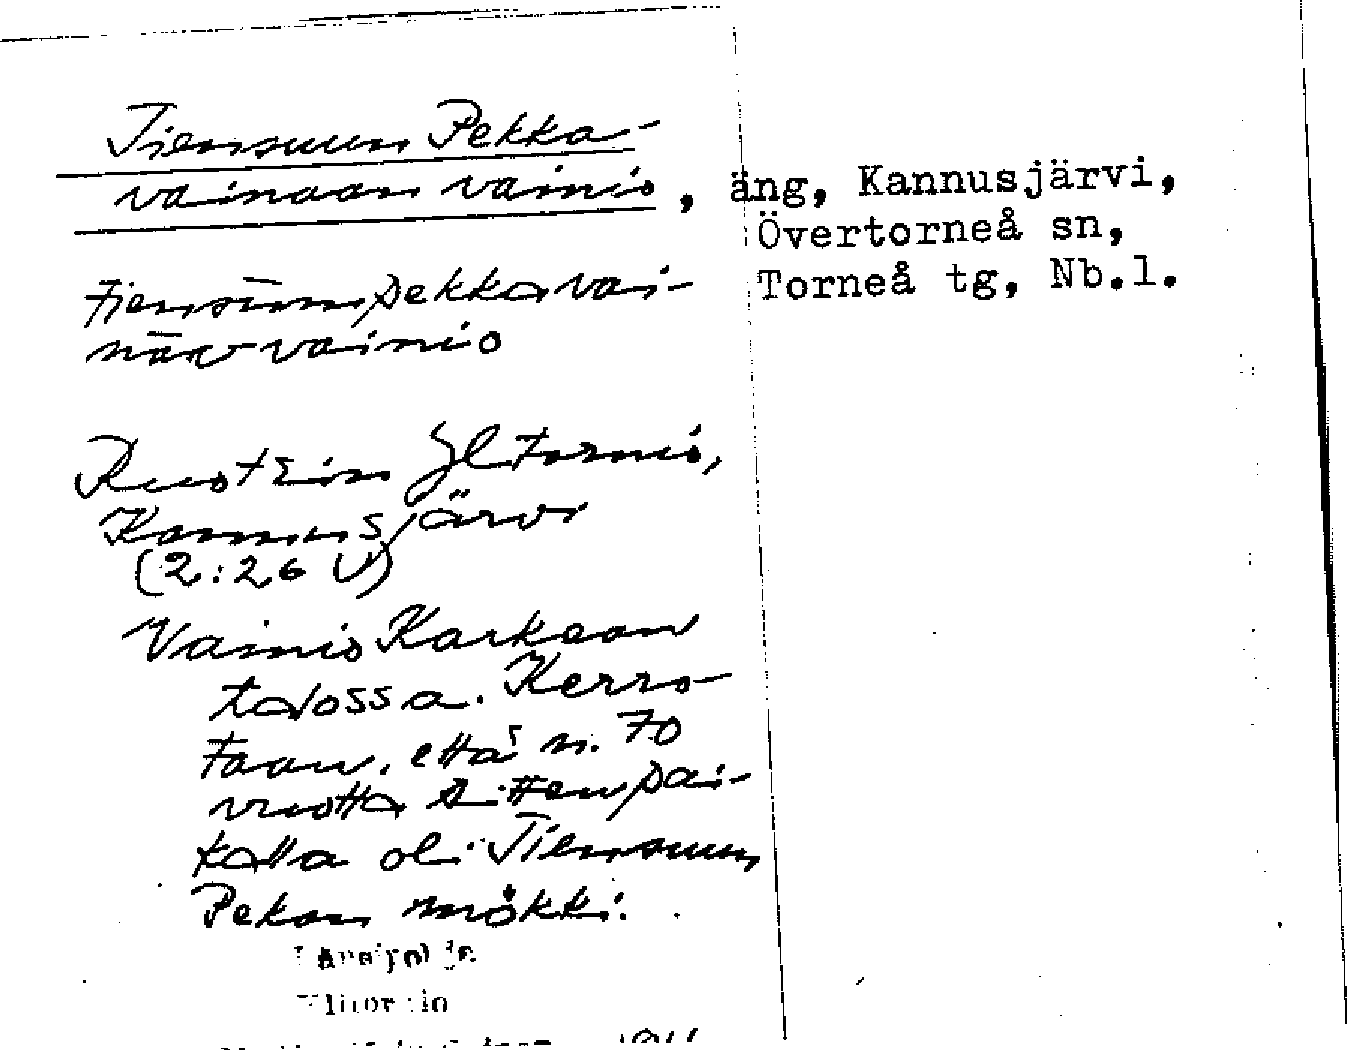 Tiensuun Pekka-
vainaan vainio, äng, Kannusjärvi,
Övertorneå sn,
Torneå tg, Nb.l.
tiensūmpekkavai-
nāv vainio
Ruotsin Yl Tornio,
Kannusjärvi
(2:26 V)
Vainio Karkean
talossa. Kerro-
taan, että n. 70
vuotta sitten pai-
kalla oli Tiensuun
Pekan mökki.
Länsipohja
Ylitornio